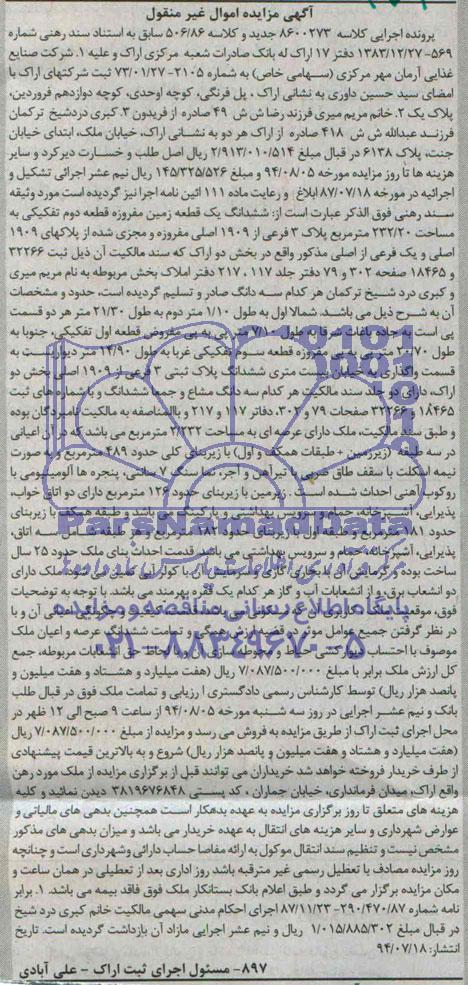 آگهی مزایده اموال غیر منقول
پرونده اجرایی کلاسه ۸۶۰۰۲۷۳ جدید و کلاسه ۵۰۶/۸۶ سابق به استناد سند رهنی شماره
۵۶۹-۱۳۸۳/۱۲/۲۷ دفتر ۱۷ اراک له بانک صادرات شعبه مرکزی اراک و علیه ۱. شرکت صنایع
غذایی آرمان مهر مرکزی (سهامی خاص) به شماره ۲۱۰۵-۷۳/۰۱/۲۷ ثبت شرکتهای اراک با
امضای سید حسین داوری به نشانی اراک ، پل فرنگی، کوچه اوحدی، کوچه دوازدهم فروردین،
پلاک یک ۲. خانم مریم میری فرزند رضا ش ش ۴۹ صادره از فریدون ۳. کبری دردشیخ ترکمان
فرزند عبدالله ش ش ۴۱۸ صادره از اراک هر دو به نشانی اراک، خیابان ملک، ابتدای خیابان
جنت، پلاک ۶۱۳۸ در قبال مبلغ ۲/۹۱۳/۰۱۰/۵۱۴ ریال اصل طلب و خسارت دیرکرد و سایر
هزینه ها تا روز مزایده مورخه ۹۴/۰۸/۰۵ و مبلغ ۱۴۵/۳۲۵/۵۲۶ ریال نیم عشر اجرائی تشکیل و
اجرائیه در مورخه ۸۷/۰۷/۱۸ ابلاغ و رعایت ماده ۱۱۱ ائین نامه اجرا نیز گردیده است مورد وثیقه
سند رهنی فوق الذکر عبارت است از: ششدانگ یک قطعه زمین مفروزه قطعه دوم تفکیکی به
مساحت ۲۳۲/۲۰ مترمربع پلاک ۳ فرعی از ۱۹۰۹ اصلی مفروزه و مجزی شده از پلاکهای ۱۹۰۹
اصلی و یک فرعی از اصلی مذکور واقع در بخش دو اراک که سند مالکیت آن ذیل ثبت ۳۲۲۶۶
و ۱۸۴۶۵ صفحه ۳۰۲ و ۷۹ دفتر جلد ۱۱۷ ، ۲۱۷ دفتر املاک بخش مربوطه به نام مریم میری
و کبری درد شیخ ترکمان هر کدام سه دانگ صادر و تسلیم گردیده است، حدود و مشخصات
آن به شرح ذیل می باشد. شمالا اول به طول ۱/۱۰ متر دوم به طول ۲۱/۳۰ متر هر دو قسمت
پی است به جاده باغات شرقا به طول ۷/۱۰ متر پی به پی مفروض قطعه اول تفکیکی، جنوبا به
طول ۲۰/۷۰ متر پی به پی مفروزه قطعه سوم تفکیکی غربا به طول ۱۴/۹۰ متر دیواریست به
قسمت واگذاری به خیابان بیست متری ششدانگ پلاک ثبتی ۳ فرعی از ۱۹۰۹ اصلی بخش دو
اراک، دارای دو جلد سند مالکیت هر کدام سه دانگ مشاع و جمعا ششدانگ و باشماره های ثبت
۱۸۴۶۵ و ۳۲۲۶۶ صفحات ۷۹ و ۳۰۲، دفاتر ۱۱۷ و ۲۱۷ و بالمناصفه به مالکیت نامبردگان بوده
و طبق سند مالکیت، ملک دارای عرصه ای به مساحت ۲/۲۳۲ مترمربع می باشد که در آن اعیانی
در سه طبقه (زیرزمین + طبقات همکف و اول) با زیربنای کلی حدود ۴۸۹ مترمربع و به صورت
نیمه اسکلت با سقف طاق ضربی با تیرآهن و آجر، نما سنگ ۷ سانتی، پنجره ها آلومینیومی با
روکوب آهنی احداث شده است. زیرزمین با زیربنای حدود ۱۲۶ مترمربع دارای دو اتاق خواب،
پذیرایی، آشپزخانه، حمام و سرویس بهداشتی و پارکینگ می باشد و طبقه همکف با زیربنای
حدود ۱۸۱ مترمربع و طبقه اول با زیربنای حدود ۱۸۲ مترمربع و هر طبقه شامل سه اتاق،
پذیرایی، آشپزخانه، حمام و سرویس بهداشتی می باشد قدمت احداث بنای ملک حدود ۲۵ سال
ساخت بوده و گرمایش آن با بخاری گازی و سرمایش آن با کولر آبی تامین می شود ملک دارای
دو انشعاب برق و از انشعابات آب و گاز هر کدام یک فقره بهرمند می باشد. با توجه به توضیحات
فوق، موقعیت
در نظر گرفتن جمیع عوامل موثر در قضیه ارزش و تمامت ششدانگ عرصه و اعیان ملک
موصوف با احتساب دیوارکشی حیاط و محوطه سازی و با لحاظ حق انشعابات مربوطه، جمع
کل ارزش ملک برابر با مبلغ ۷/۰۸۷/۵۰۰/۰۰۰ ریال (هفت میلیارد و هشتاد و هفت میلیون و
پانصد هزار ریال) توسط کارشناس رسمی دادگستری ا رزیابی و تمامت ملک فوق در قبال طلب
بانک و نیم عشر اجرایی در روز سه شنبه مورخه ۹۴/۰۸/۰۵ از ساعت ۹ صبح الی ۱۲ ظهر در
محل اجرای ثبت اراک از طریق مزایده به فروش می رسد و مزایده از مبلغ ۷/۰۸۷/۵۰۰/۰۰۰ ریال
(هفت میلیارد و هشتاد و هفت میلیون و پانصد هزار ریال) شروع و به بالاترین قیمت پیشنهادی
از طرف خریدار فروخته خواهد شد خریداران می توانند قبل از برگزاری مزایده از ملک مورد رهن
واقع اراک، میدان فرمانداری، خیابان جماران ، کد پستی ۳۸۱۹۶۷۶۸۴۸ دیدن نمائید و کلیه
هزینه های متعلق تا روز برگزاری مزایده به عهده بدهکار است همچنین بدهی های مالیاتی و
عوارض شهرداری و سایر هزینه های انتقال به عهده خریدار می باشد و میزان بدهی های مذکور
مشخص نیست و تنظیم سند انتقال موکول به ارائه مفاصا حساب دارائی وشهرداری است و چنانچه
روز مزایده مصادف با تعطیل رسمی غیر مترقبه باشد روز اداری بعد از تعطیلی در همان ساعت و
مکان مزایده برگزار می گردد و طبق اعلام بانک بستانکار ملک فوق فاقد بیمه می باشد. ۱. برابر
نامه شماره ۲۹۰/۴۷۰/۸۷-۸۷/۱۱/۲۳ اجرای احکام مدنی سهمی مالکیت خانم کبری درد شیخ
در قبال مبلغ ۱/۰۱۵/۸۸۵/۳۰۲ ریال و نیم عشر اجرایی مازاد آن بازداشت گردیده است. تاریخ
انتشار: ۹۴/۰۷/۱۸
۸۹۷- مسئول اجرای ثبت اراک - علی آبادی
ParsNamadData
پایگاه اطلاع رسانی مناقصه و مزایده
۰۲۱-۸۸۳۴۹۶۷۰-۵